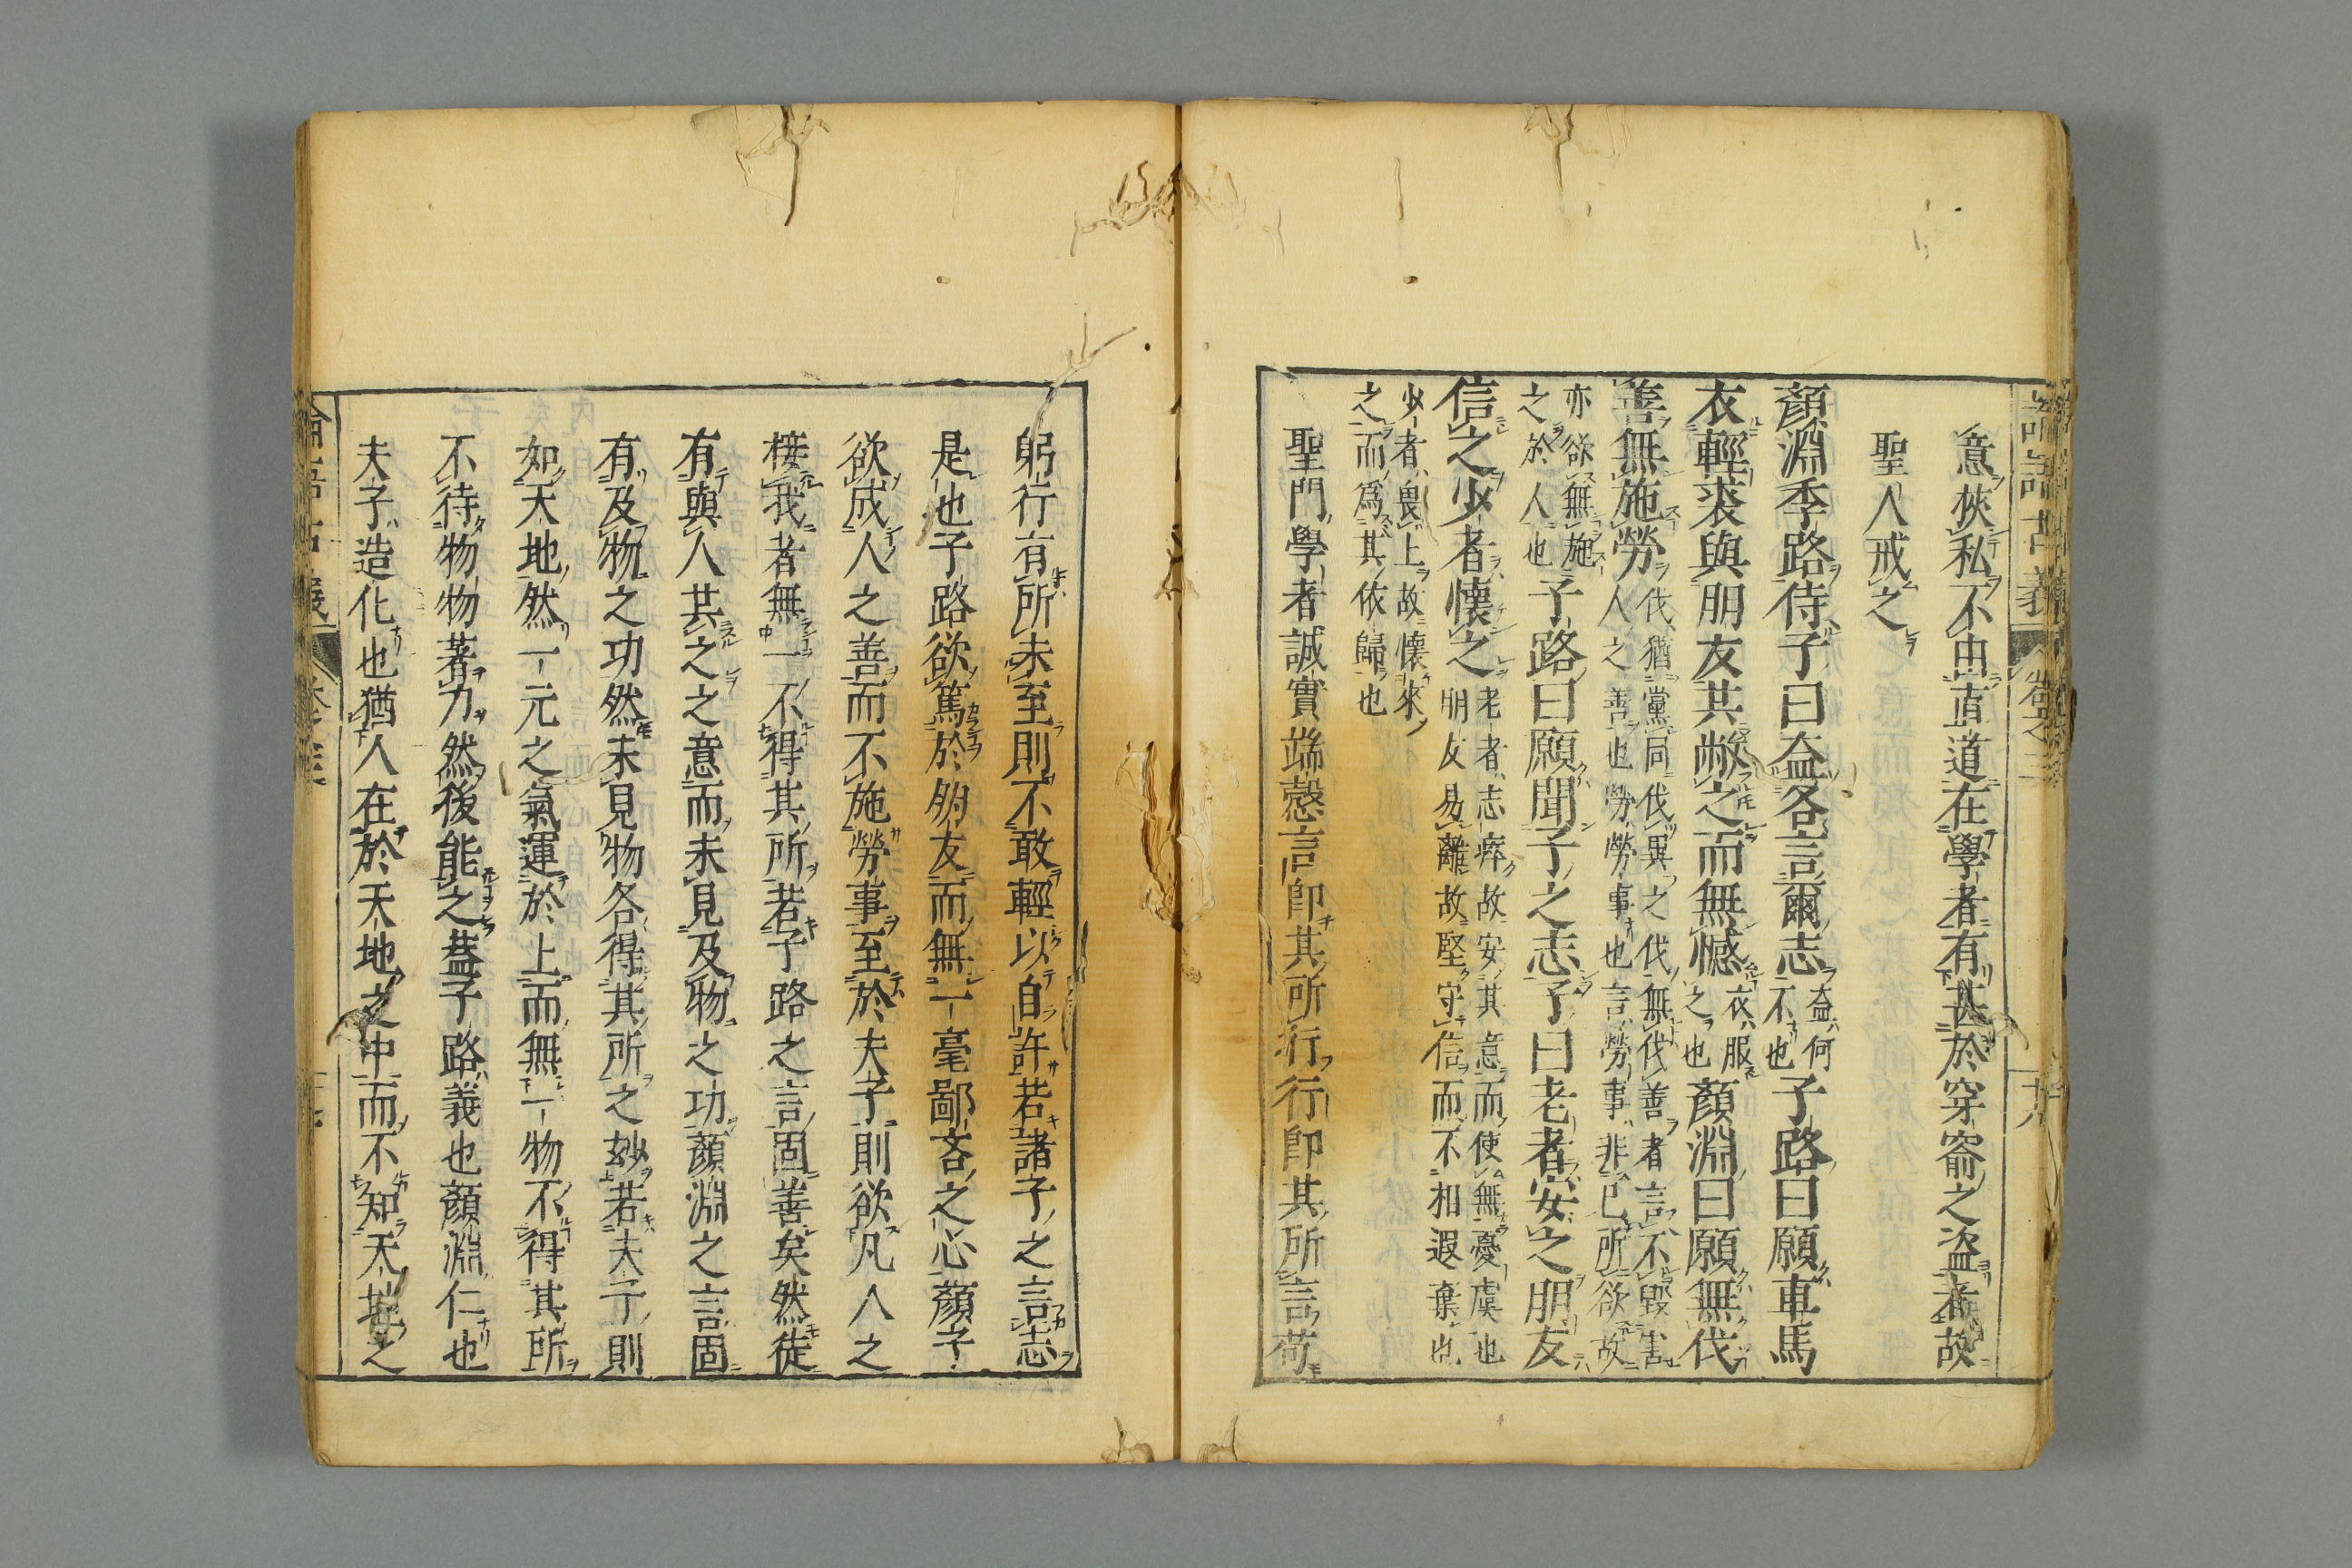 意挾私不由直道在學者有甚於穿窬之盜者故
聖人戒之
顏淵季路侍子曰盍各言爾志
盍何
不也
子路曰願車馬
衣輕裘與朋友共敝之而無憾
衣服
之也
顏淵曰願無伐
善無施勞
伐猶黨同伐異之伐無伐善者言不毀害
人之善也勞勞事也言勞事非己所欲故
亦欲無施
之於人也
子路曰願聞子之志子曰老者安之朋友
信之少者懷之
老者志瘁故安其意而使無憂虞也
朋友易離故堅守信而不相遐棄也
少者畏上故懷來
之而爲其依歸也
聖門學者誠實端愨言即其所行行即其所言苟
躬行有所未至則不敢輕以自許若諸子之言志
是也子路欲篤於朋友而無一毫鄙吝之心顏子
欲成人之善而不施勞事至於夫子則欲凡人之
接我者無一不得其所若子路之言固善矣然徒
有與人共之之意而未見及物之功顏淵之言固
有及物之功然未見物各得其所之妙若夫子則
如天地然一元之氣運於上而無一物不得其所
不待物物著力然後能之蓋子路義也顏淵仁也
夫子造化也猶人在於天地之中而不知天地之
論語古義
卷之三
十八